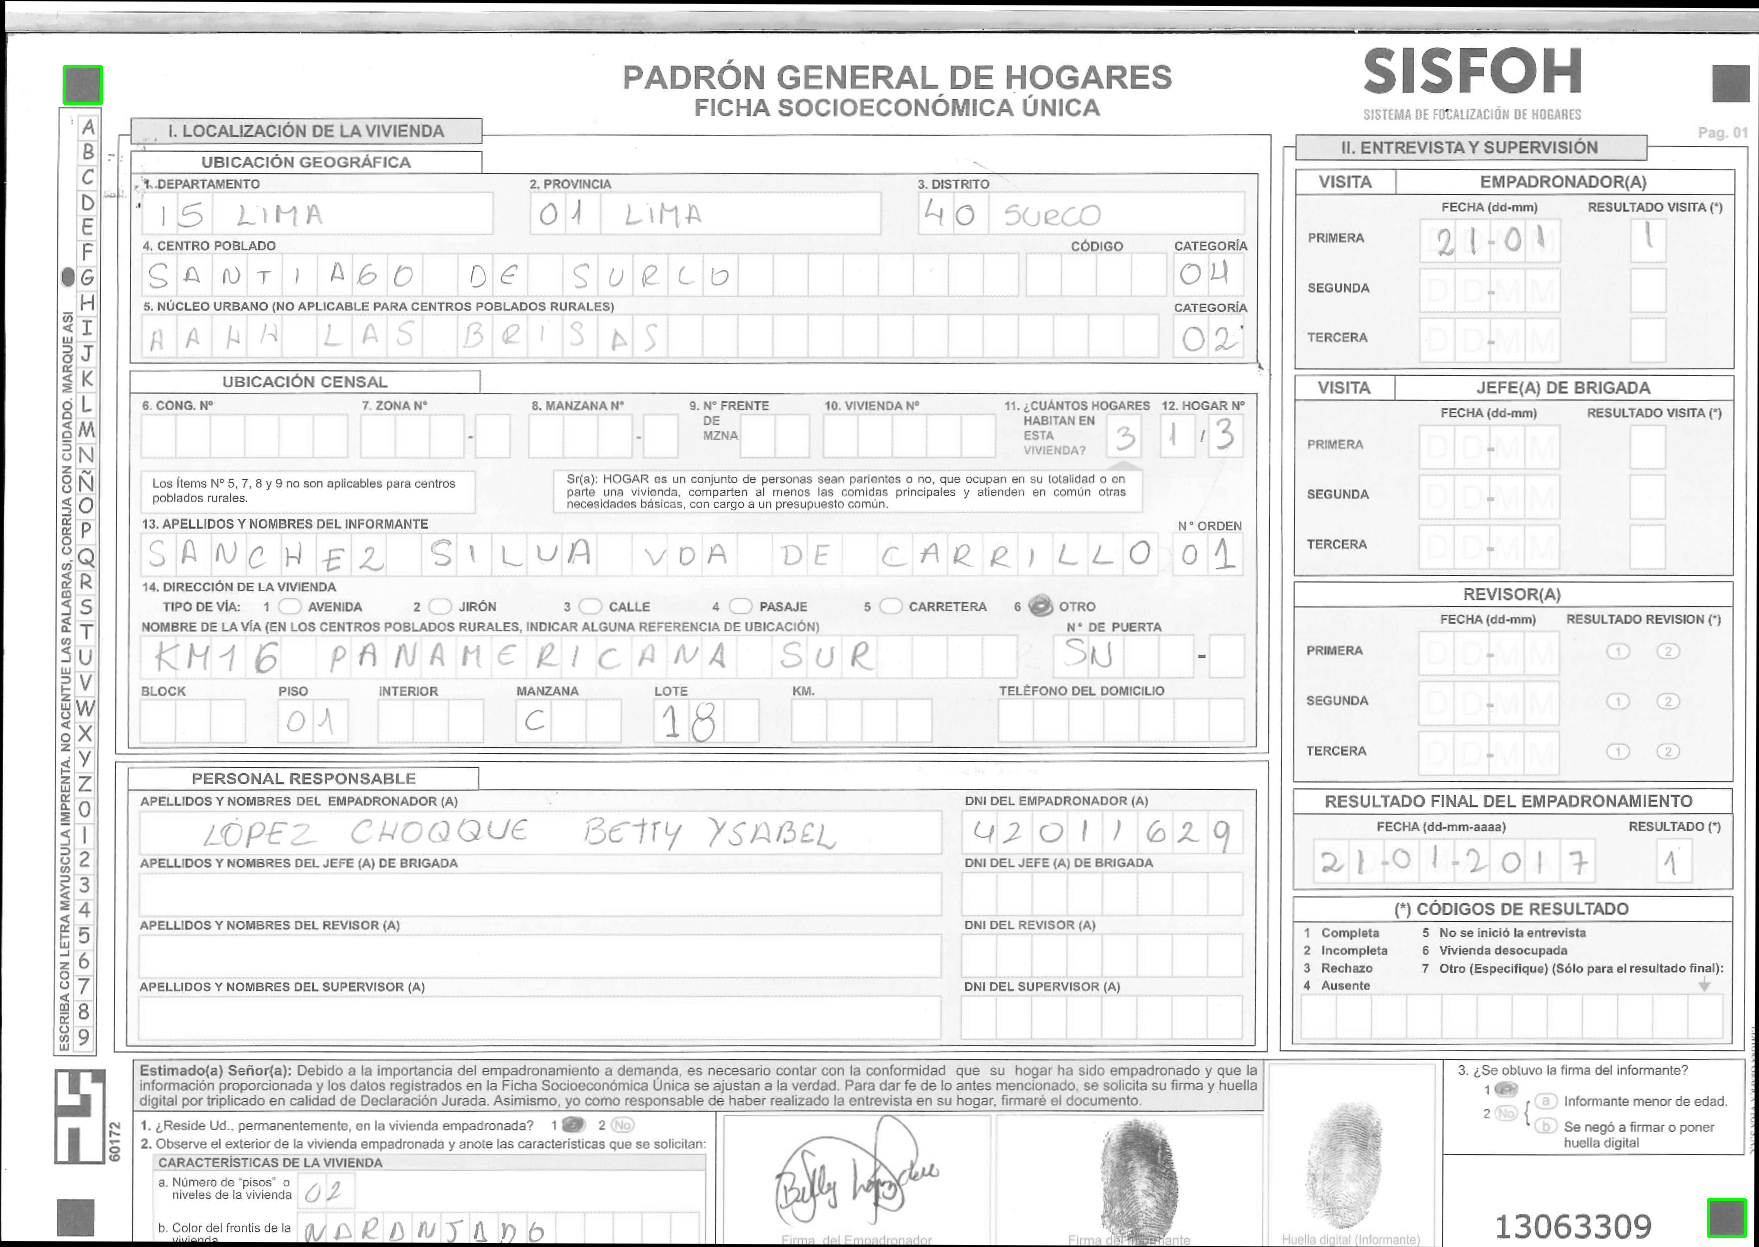 PADRÓN GENERAL DE HOGARES
FICHA SOCIOECONÓMICA ÚNICA
SISFOH
SISTEMA DE FOCALIZACIÓN DE HOGARES
Pag. 01
I. LOCALIZACIÓN DE LA VIVIENDA
UBICACIÓN GEOGRÁFICA
1. DEPARTAMENTO 2. PROVINCIA 3. DISTRITO
15 LIMA 01 LIMA 40 SURCO
4. CENTRO POBLADO CÓDIGO CATEGORÍA
SANTIAGO DE SURCO 04
5. NÚCLEO URBANO (NO APLICABLE PARA CENTROS POBLADOS RURALES) CATEGORÍA
AAHH LAS BRISAS 02
UBICACIÓN CENSAL
6. CONG. Nº 7. ZONA Nº 8. MANZANA Nº 9. Nº FRENTE DE MZNA 10. VIVIENDA Nº 11. ¿CUÁNTOS HOGARES HABITAN EN ESTA VIVIENDA? 12. HOGAR Nº
3 1 / 3
Los Ítems Nº 5, 7, 8 y 9 no son aplicables para centros
poblados rurales.
Sr(a): HOGAR es un conjunto de personas sean parientes o no, que ocupan en su totalidad o en
parte una vivienda, comparten al menos las comidas principales y atienden en común otras
necesidades básicas, con cargo a un presupuesto común.
13. APELLIDOS Y NOMBRES DEL INFORMANTE Nº ORDEN
SANCHEZ SILVA VDA DE CARRILLO 01
14. DIRECCIÓN DE LA VIVIENDA
TIPO DE VÍA: 1 AVENIDA 2 JIRÓN 3 CALLE 4 PASAJE 5 CARRETERA 6 OTRO
NOMBRE DE LA VÍA (EN LOS CENTROS POBLADOS RURALES, INDICAR ALGUNA REFERENCIA DE UBICACIÓN) Nº DE PUERTA
KM16 PANAMERICANA SUR SN -
BLOCK PISO INTERIOR MANZANA LOTE KM. TELÉFONO DEL DOMICILIO
01 C 18
PERSONAL RESPONSABLE
APELLIDOS Y NOMBRES DEL EMPADRONADOR (A) DNI DEL EMPADRONADOR (A)
LÓPEZ CHOQQUE BETTY YSABEL 42011629
APELLIDOS Y NOMBRES DEL JEFE (A) DE BRIGADA DNI DEL JEFE (A) DE BRIGADA
APELLIDOS Y NOMBRES DEL REVISOR (A) DNI DEL REVISOR (A)
APELLIDOS Y NOMBRES DEL SUPERVISOR (A) DNI DEL SUPERVISOR (A)
II. ENTREVISTA Y SUPERVISIÓN
VISITA EMPADRONADOR(A)
FECHA (dd-mm) RESULTADO VISITA (*)
PRIMERA 21-01 1
SEGUNDA DD-MM
TERCERA DD-MM
VISITA JEFE(A) DE BRIGADA
FECHA (dd-mm) RESULTADO VISITA (*)
PRIMERA DD-MM
SEGUNDA DD-MM
TERCERA DD-MM
REVISOR(A)
FECHA (dd-mm) RESULTADO REVISION (*)
PRIMERA DD-MM 1 2
SEGUNDA DD-MM 1 2
TERCERA DD-MM 1 2
RESULTADO FINAL DEL EMPADRONAMIENTO
FECHA (dd-mm-aaaa) RESULTADO (*)
21-01-2017 1
(*) CÓDIGOS DE RESULTADO
1 Completa 5 No se inició la entrevista
2 Incompleta 6 Vivienda desocupada
3 Rechazo 7 Otro (Especifique) (Sólo para el resultado final):
4 Ausente
ESCRIBA CON LETRA MAYUSCULA IMPRENTA. NO ACENTUE LAS PALABRAS, CORRIJA CON CUIDADO. MARQUE ASI
A B C D E F G H I J K L M N Ñ O P Q R S T U V W X Y Z 0 1 2 3 4 5 6 7 8 9
60172
Estimado(a) Señor(a): Debido a la importancia del empadronamiento a demanda, es necesario contar con la conformidad que su hogar ha sido empadronado y que la
información proporcionada y los datos registrados en la Ficha Socioeconómica Única se ajustan a la verdad. Para dar fe de lo antes mencionado, se solicita su firma y huella
digital por triplicado en calidad de Declaración Jurada. Asimismo, yo como responsable de haber realizado la entrevista en su hogar, firmaré el documento.
1. ¿Reside Ud., permanentemente, en la vivienda empadronada? 1 2 No
2. Observe el exterior de la vivienda empadronada y anote las características que se solicitan:
CARACTERÍSTICAS DE LA VIVIENDA
a. Número de "pisos" o
niveles de la vivienda 02
b. Color del frontis de la
vivienda NARANJADO
Firma del Empadronador
Firma del Informante
Huella digital (Informante)
3. ¿Se obtuvo la firma del informante?
1
2 No a Informante menor de edad.
b Se negó a firmar o poner
huella digital
13063309